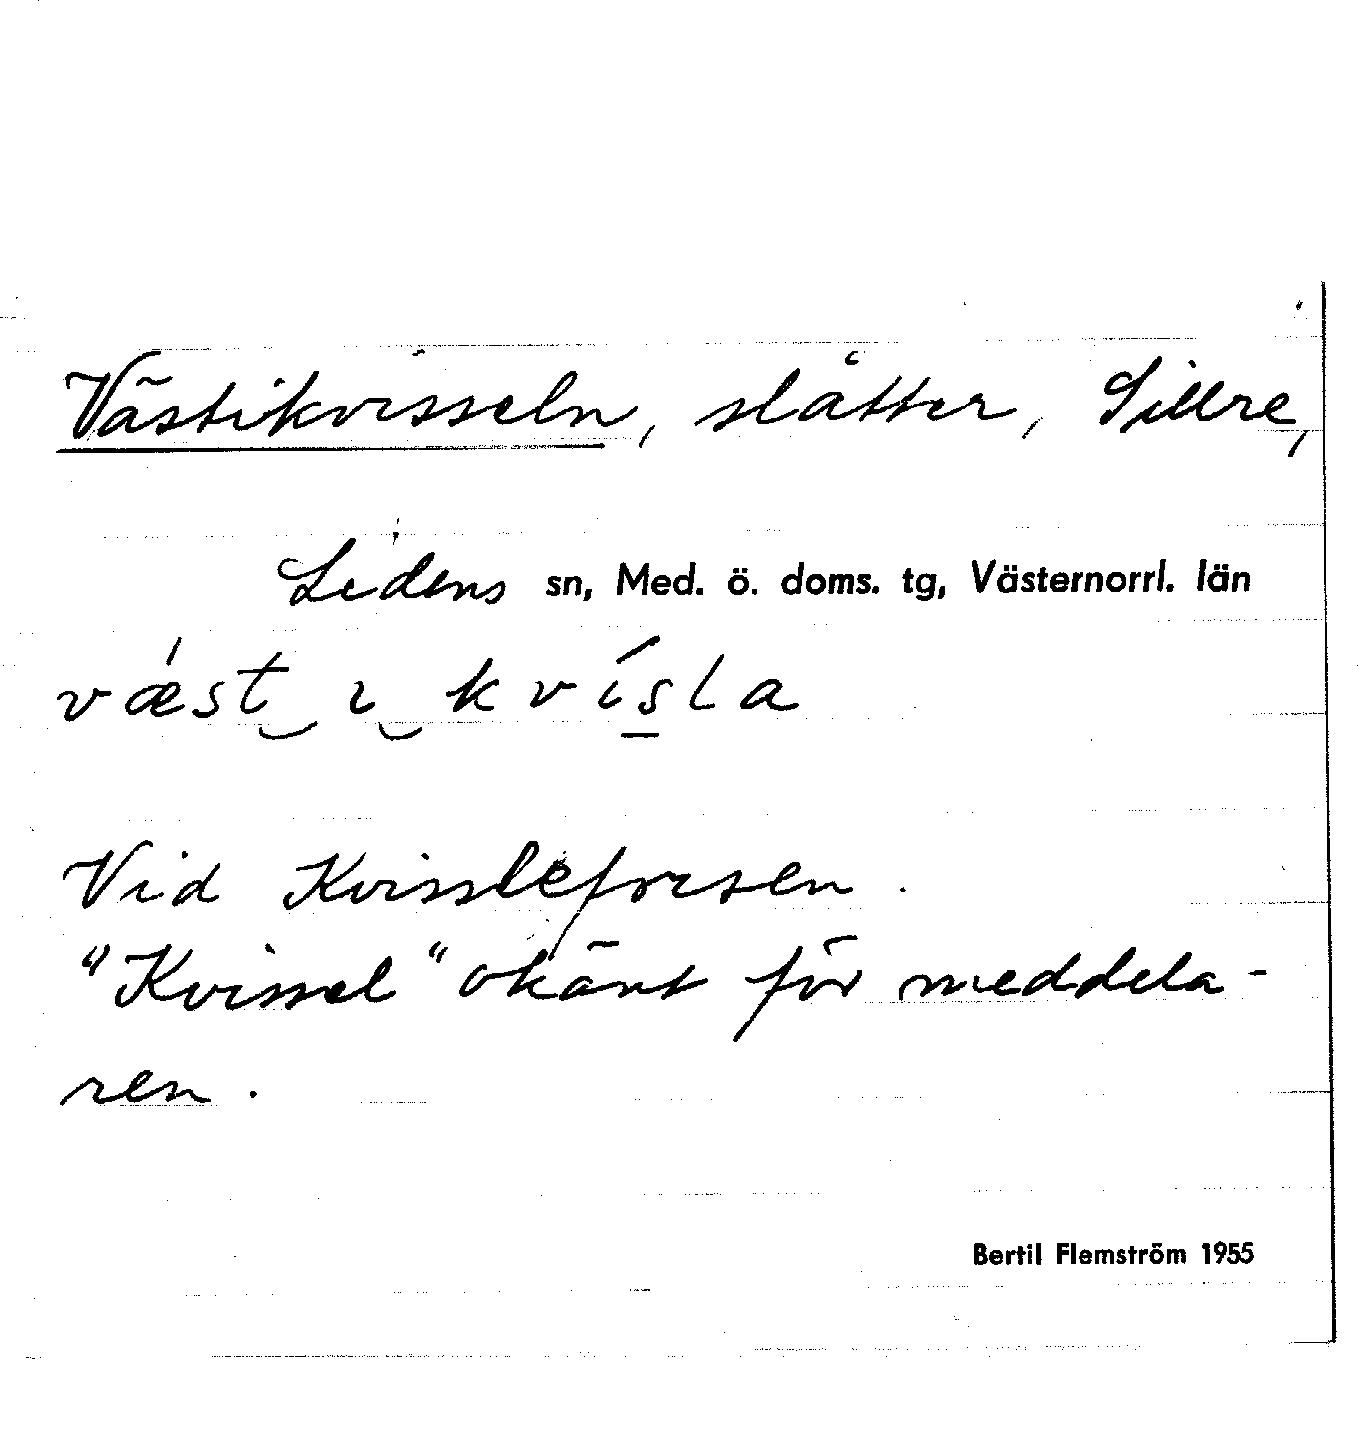 Västikvisseln, slåtter, Sillre,
Lidens sn, Med. ö. doms. tg, Västernorrl. län
vǽst‿ı‿kvísla
Vid Kvisslefresen.
"Kvissel" okänt för meddela-
ren.
Bertil Flemström 1955